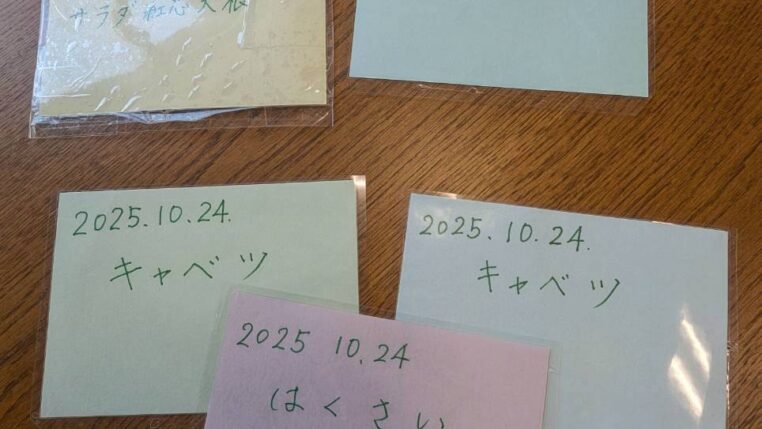 サラダ紅芯大根
2025.10.24.
キャベツ
2025.10.24.
キャベツ
2025 10.24
はくさい